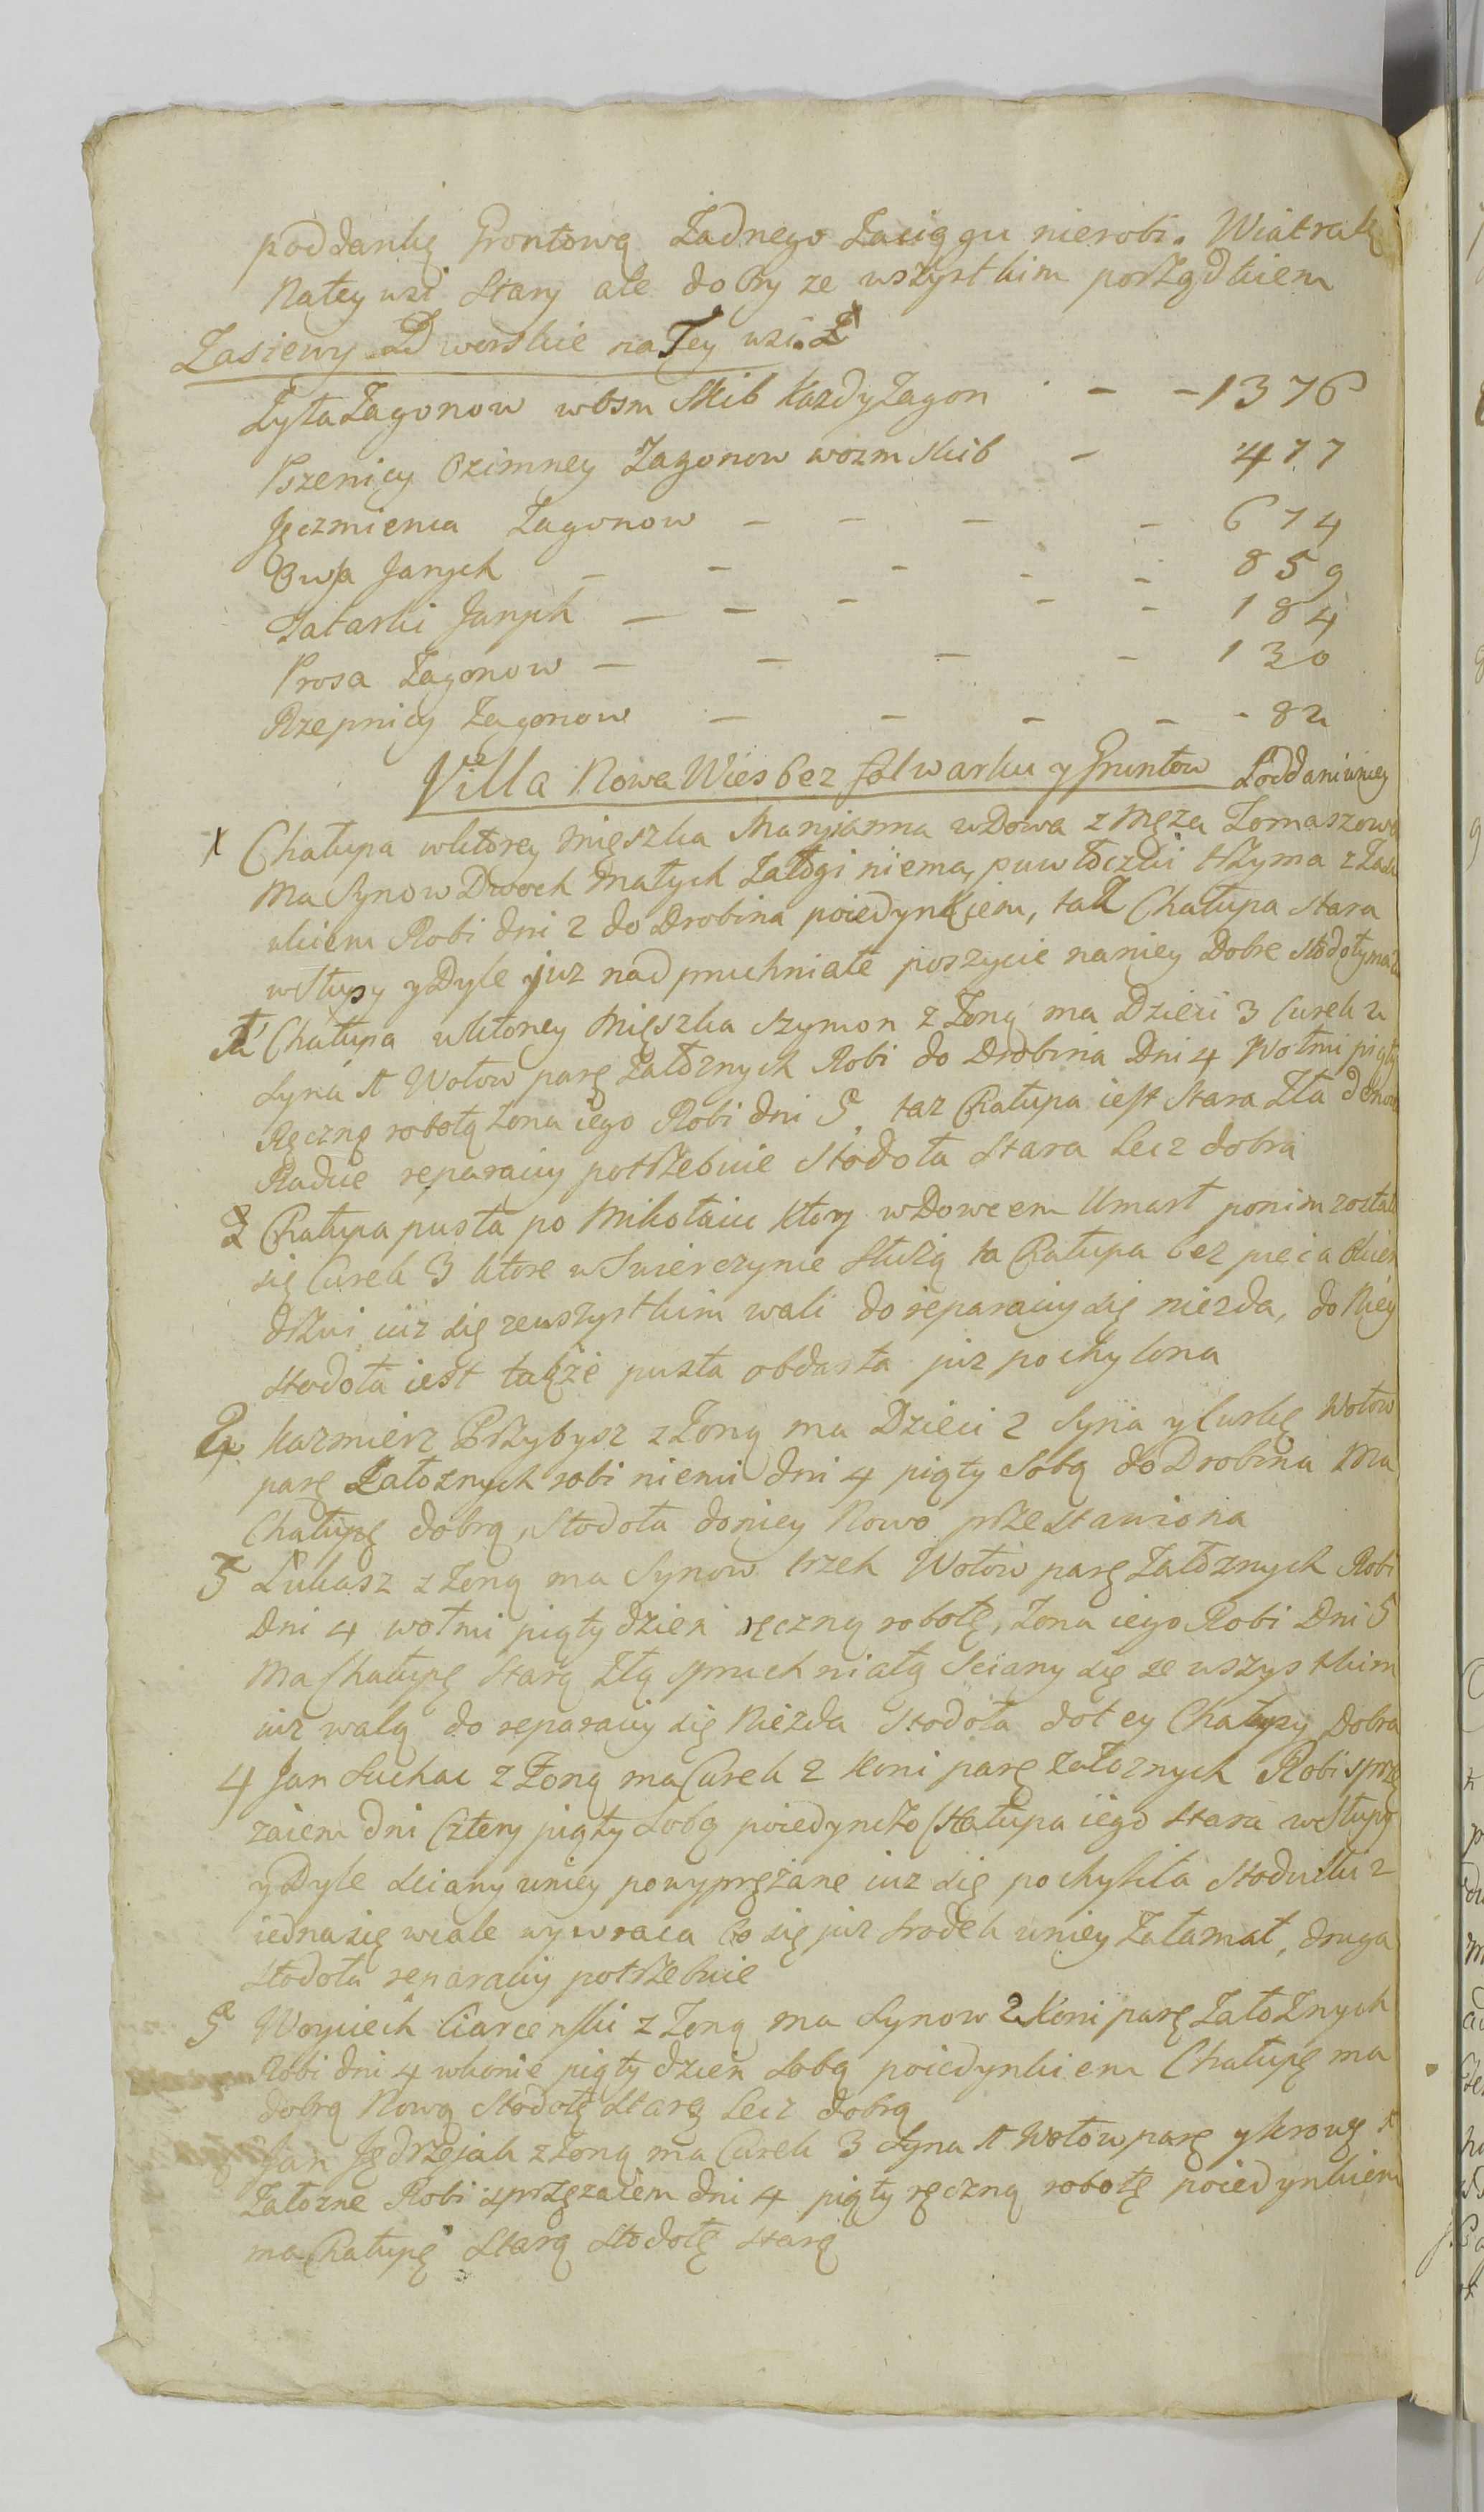 poddankę Grontową Żadnego Zaciągu nierobi. Wiatrak
Natey wsi Stary ale dobry ze wszystkim porządkiem
Zasiewy Dworskie naTey wsi.
ZytaZagonow wosm Skib KazdyZagon - - 1376
Pszenicy Ozimney Zagonow wozm skib - 477
Jęczmienia Zagonow - - - - 674
Owsa Jarych - - - - - 859
Tatarki Jarych - - - - - 184
Prosa Zagonow - - - - 130
Rzepnicy Zagonow - - - - - 82
Villa Nowa Wies bez folwarku y Gruntow Poddani wniey
Chałupa wktorey Mięszka Maryianna wDowa z Męża Tomaszowa
Ma Synow Dwoch Małych Załogi niema, puwłoczki trzyma z Zasi
wkiem Robi dni 2 do Drobina poiedynkiem, taż Chałupa stara
wSłupy y Dyle już nadpruchniałe poszycie naniey Dobre stodoły
Chałupa wktorey Mięszka Szymon z Żoną ma Dzieci 3 Curek 2
Syna 1 Wołow parę Załoznych Robi do Drobina Dni 4 Wołmi piąty
Ręczną robotą żona iego Robi dni 5 taz Chałupa iest stara Zła
Radue reparaciy potrzebuie Stodoła Stara Lecz dobra
Chałupa pusta po Mikołaiu Ktory wDowcem Umarł ponim została
się Curek 3 ktore wSwierczynie Służą ta Chałupa bez pieca Okien
drzwi iuz się zewszystkim wali do reparaciy się niezda, do Niey
stodoła iest także pusta obdarta juz pochylona
Kazmierz Przybysz z Żoną ma Dzieci 2 Syna y Curkę Wołow
parę Załoznych robi niemi dni 4 piąty Sobą do Drobina Ma
Chałupę dobrą, Stodoła doniey Nowo przestawiona
5 Łukasz z Żoną ma Synow trzeh Wołow parę Załoznych Robi
Dni 4 wołmi piąty dzien ręczną robotę, Żona iego Robi Dni 5
Ma Chałupę Starą Złą spruchniałą Sciany się ze wszystkim
iuz walą do reparaciy się Niezda Stodoła dotey Chałupy Dobra
4 Jan Suchac z Żoną ma Curek 2 Koni parę załoznych Robi sprzę
zaiem dni Cztery piąty Sobą poiedynczo Chałupa iego stara wSłupy
y Dyle sciany uniey powyprężane iuz się pochyliła Stodułki 2
iednasię wcale wywraca bo się już środek uniey Załamał, druga
Stodoła reparaciy potrzebuie
5 Woyciech Ciarcenski z Żoną ma Synow 2 Koni parę Załoznych
Robi dni 4 wkonie piąty dzien Sobą poiedynkiem Chałupę ma
dobrą Nową Stodołę Starą Lecz dobrą
Jan Jędrzejak z Żoną ma Curek 3 Syna 1 Wołow parę y krowę 1
Załozne Robi sprzęzaiem dni 4 piąty ręczną robotę poiedynkiem
ma Chałupę Starą Stodołę starą